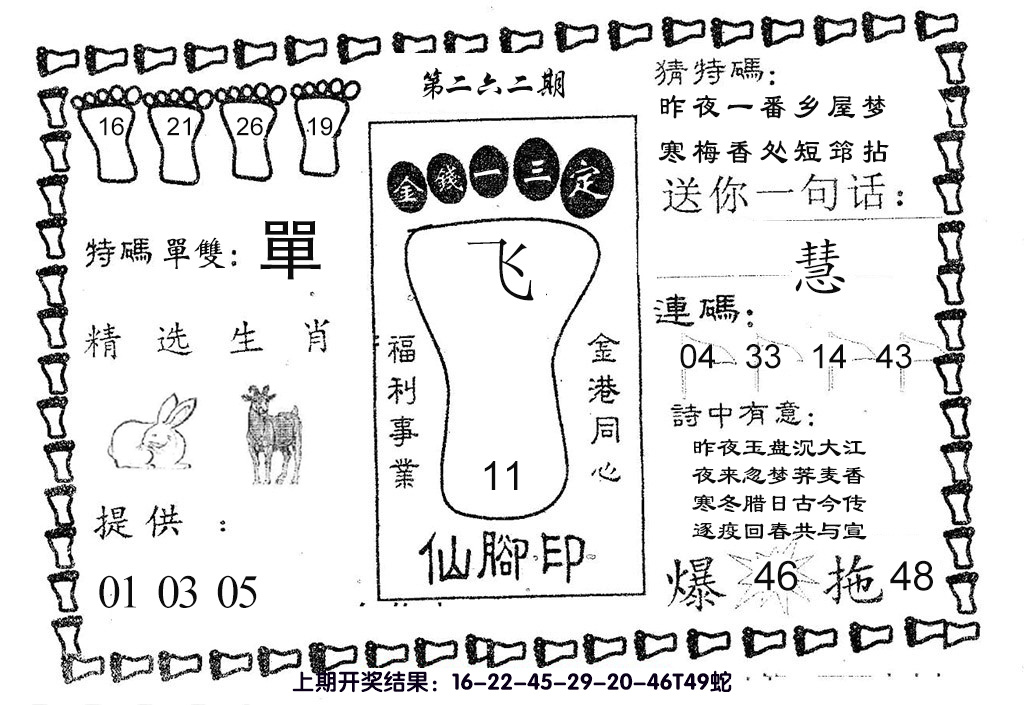 第二六二期
16 21 26 19
特碼單雙：單
精选生肖
提供：
01 03 05
金錢一三定
飞
福利事業
金港同心
11
仙腳印
猜特碼：
昨夜一番乡屋梦
寒梅香处短筇拈
送你一句话：
慧
連碼：
04 33 14 43
詩中有意：
昨夜玉盘沉大江
夜来忽梦荞麦香
寒冬腊日古今传
逐疫回春共与宣
爆 46 拖 48
上期开奖结果：16-22-45-29-20-46T49蛇